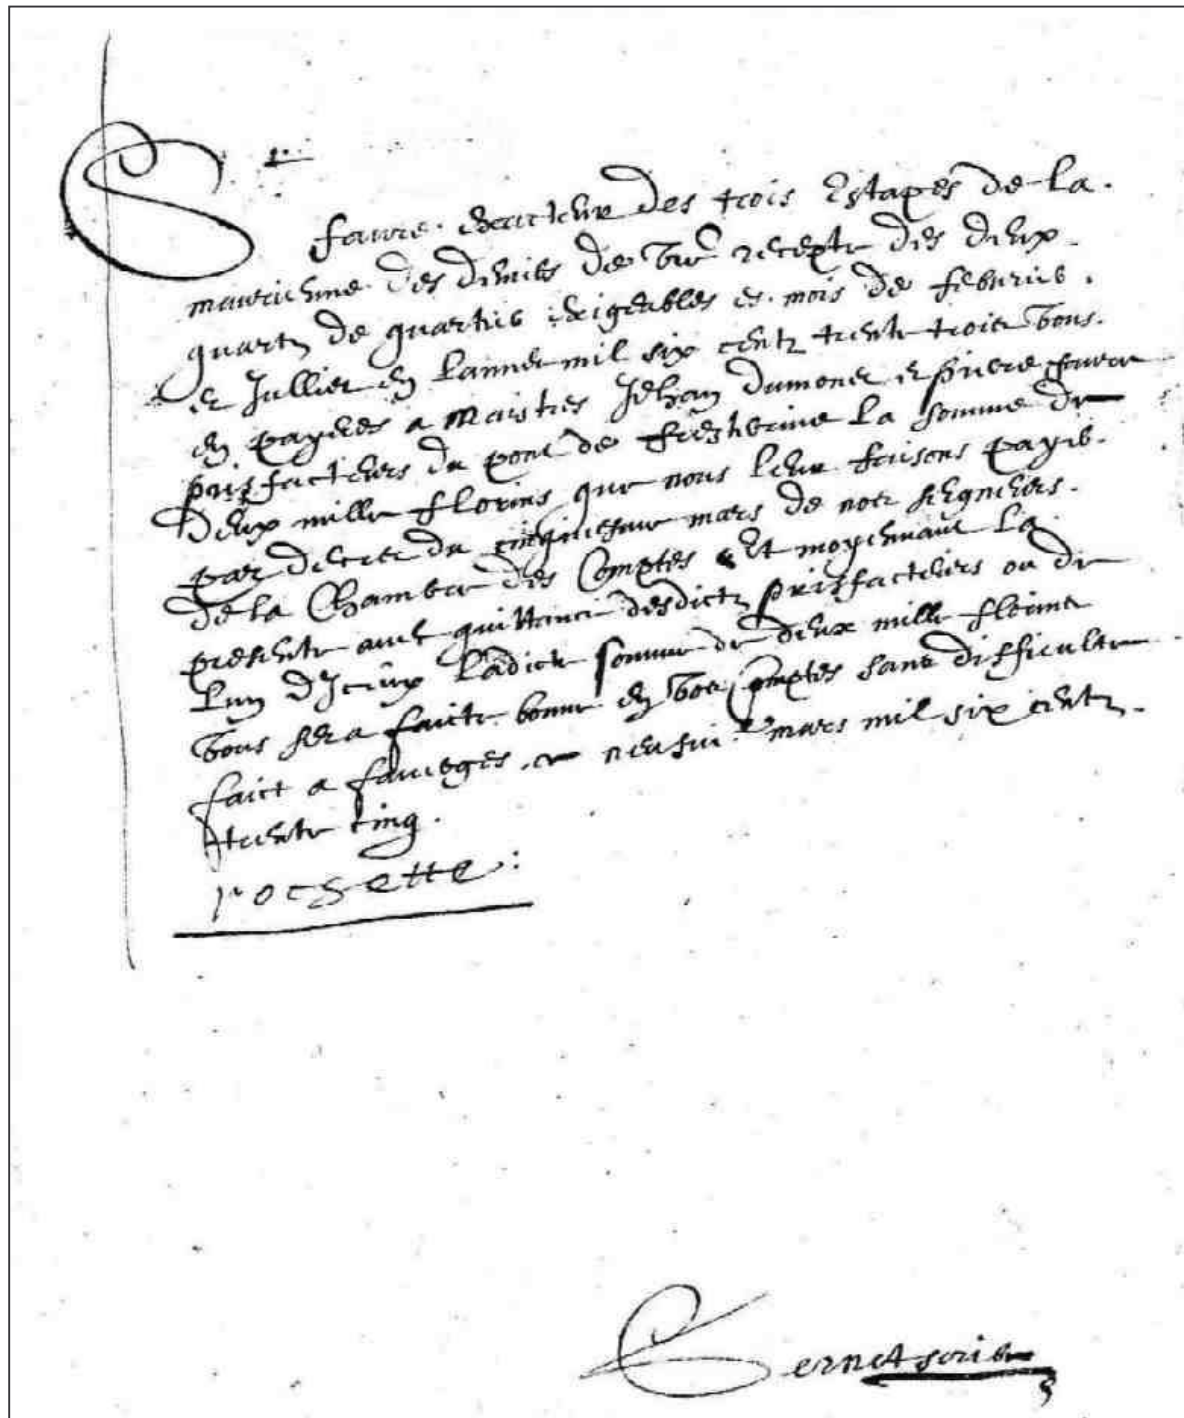 S.r
faure. exacteur des trois Estapes de la.
maurienne des deniers de vre recepte des deux.
quartz de quartier exigeables es. mois de febvrier.
et Jullier en lannee mil six centz trente trois vous.
en payeres a Maistres Jehan dumonet et pierre favre
prisfacteurs du pont de fresterive la somme de
deux mille florins que nous leur faisons payer.
par decret du cinquiesme mars de nos seigneurs.
de la Chambre des Comptes Et moyennant la
presente avec quittance desdictz prisfacteurs ou de
lun dJceux ladicte somme de deux mille florins
vous sera faicte bonne en vos comptes sans difficulte
faict a faverges. ce mars mil six centz.
trente cinq.
rochette: